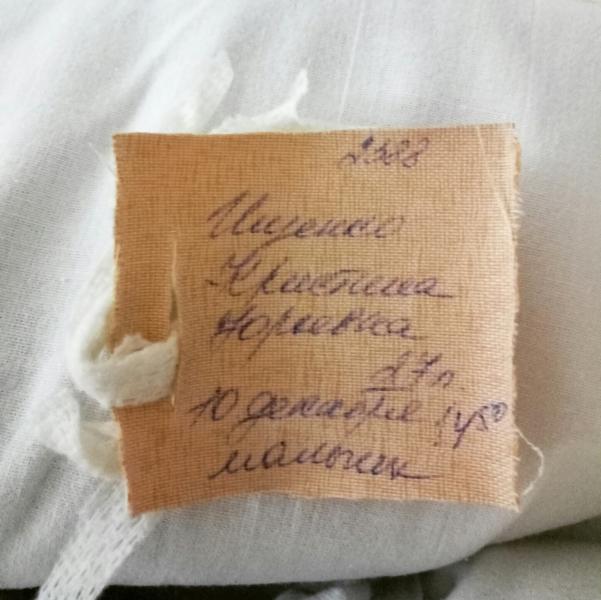 2588
Ищенко
Кристина
Юрьевна
27л
10 декабря 14⁵⁰
мальчик